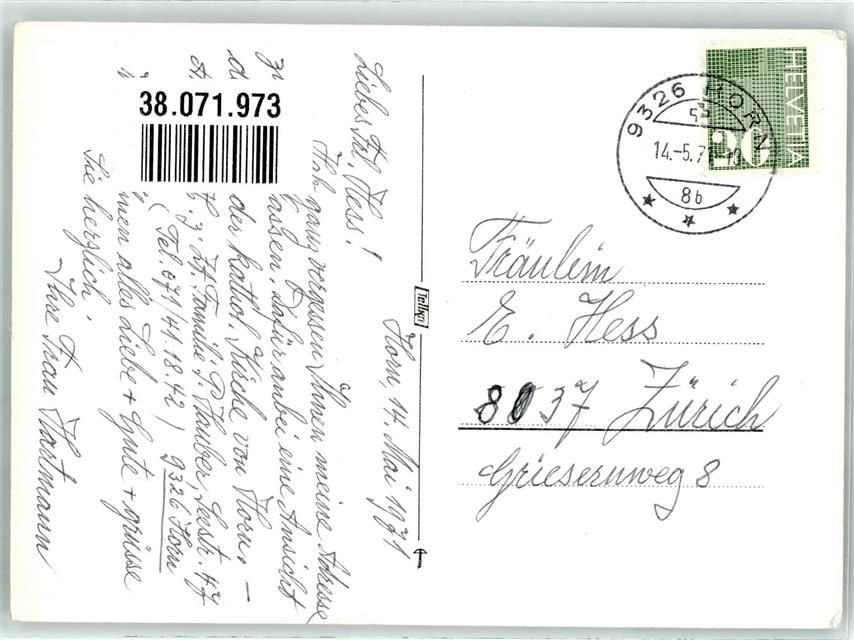 Horn, 14. Mai 1971
Liebes Frl. Hess!
Hab ganz vergessen Ihnen meine Adresse
zu lassen. Dafür anbei eine Ansicht
der kathol. Kirche von Horn. –
z. Zt. Familie P. Hauber, Seestr. 47
(Tel. 071/41.18.42) 9326 Horn
men alles Liebe + Gute + grüsse
Sie herzlich.
Ihre Frau Hartmann
38.071.973
Tellko
HELVETIA
20
9326 HORN
14.-5.71-18
8b
Fräulein
E. Hess
8037 Zürich
Griesernweg 8